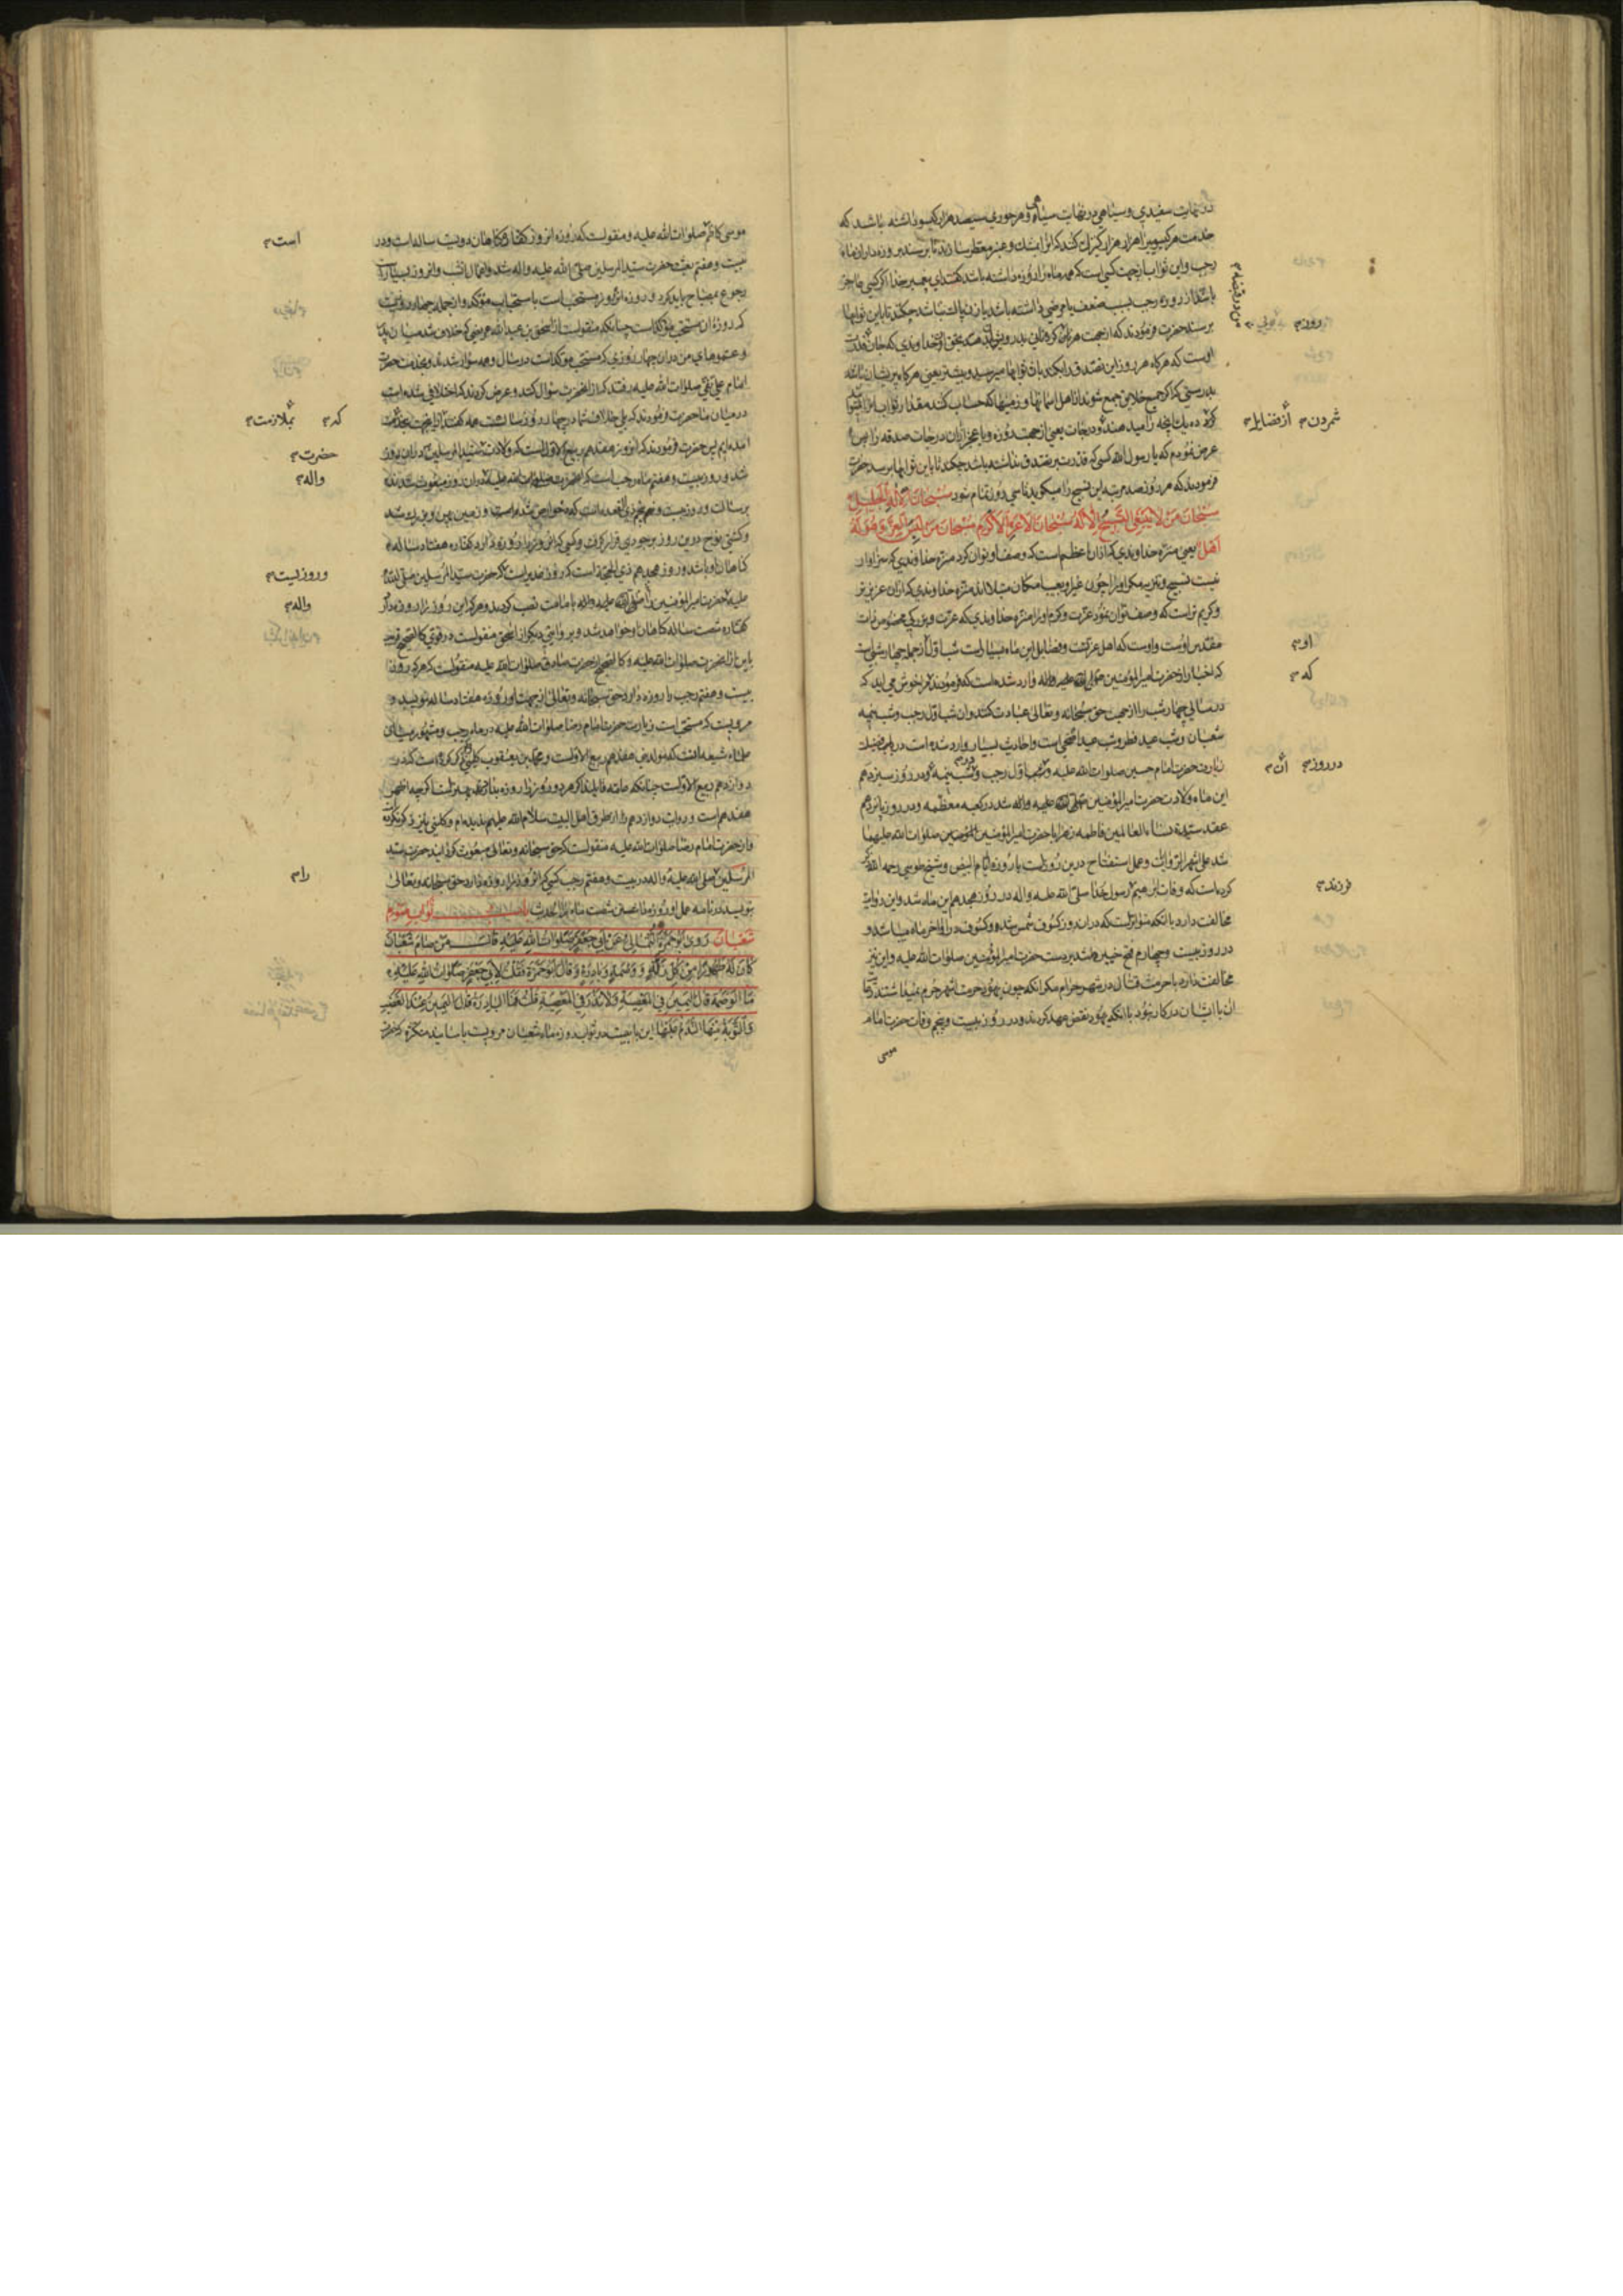 در نهایت سفیدی و سیاهی در نهایت سیاهی و هر حوری سیصد هزار گیسو داشته باشد که
خدمت هر گیسویی را هزار هزار کنیزک کنند که انرا بمشک و عنبر معطر سازند تا برسند بروزه داران ماه
رجب و این ثواب از جهت کسی است که همه ماه را روزه داشته باشد گفتند ای پیغمبر خدا اگر کسی عاجز
باشد از روزه رجب بسبب ضعف یا مرضی داشته باشد یا زن پاک نباشد چکند تا باین ثوابها
برسد حضرت فرمودند که از جهت هر روز گرده نانی بدرویشان دهد بحق آن خداوندی که جان من بدست قدرت
اوست که هرگاه هر روز این تصدق را بکند باین ثوابها میرسد و بیشتر یعنی هرگاه پریشان باشد
بدرستی که اگر جمیع خلایق جمع شوند از اهل آسمانها و زمینها که حساب کنند مقدار ثواب او را نتوانند
کرد ده یک آنچه را میدهند او را درجات یعنی از جهت روزه و یا عجز از آن درجات صدقه را پس
عرض نمودم که یا رسول الله کسی که قدرت بر تصدق نداشته باشد چکند تا باین ثوابها برسد حضرت
فرمودند که هر روز صد مرتبه این تسبیح را میگوید تا سی روز تمام شود سُبْحَانَ الْإِلٰهِ الْجَلِيلِ
سُبْحَانَ مَنْ لَا يَنْبَغِي التَّسْبِيحُ إِلَّا لَهُ سُبْحَانَ الْأَعَزِّ الْأَكْرَمِ سُبْحَانَ مَنْ لَبِسَ الْعِزَّ وَهُوَ لَهُ
أَهْلٌ یعنی منزه خداوندی که از آن اعظم است که وصف او توان کرد منزه خداوندی که سزاوار
نیست تسبیح و تنزیه مگر او را چون غیر او بعیب امکان مبتلااند منزه خداوندی که از آن عزیزتر
و کریم تر است که وصف توان نمود عزت و کرم او را منزه خداوندی که عزت و بزرگی مخصوص ذات
مقدس اوست و اوست که اهل عزتست و فضایل این ماه بسیار است شب اول از جمله چهار شبی است
که اخبار از حضرت امیرالمؤمنین صلوات الله علیه وارد شده است که فرمودند مرا خوش می آید که
در سالی چهار شب را از جهت حق سبحانه و تعالی عبادت کنند و ان شب اول رجب و شب نیمه
شعبان و شب عید فطر و شب عید اضحی است و احادیث بسیار وارد شده است در باب فضیلت
زیارت حضرت امام حسین صلوات الله علیه در شب اول رجب و شب نیمه و در روز سیزدهم
این ماه ولادت حضرت امیرالمؤمنین صلوات الله علیه شد در کعبه معظمه و در روز پانزدهم
عقد سیدة نساء العالمین فاطمه زهرا با حضرت امیرالمؤمنین صلوات الله علیهما
شد علی اشهر الروایات و عمل استفتاح درین روز است با روزه ایام البیض و شیخ طوسی رحمه الله ذکر
کرده است که وفات ابرهیم رسول خدا صلی الله علیه و اله در روز هجدهم این ماه شد و این روایة
مخالفت دارد با انکه متواتر است که در ان روز کسوف شمس شد و کسوف در اواخر ماه میباشد و
در روز بیست و چهارم فتح خیبر شد بر دست حضرت امیرالمؤمنین صلوات الله علیه و این نیز
مخالفت ندارد با حرمت قتال در شهر حرام مگر انکه چون یهود حرمت اشهر حرم نمیداشتند قتال
ان با ایشان در کار نبود با انکه یهود نقض عهد کردند و در روز بیست و پنجم وفات حضرت امام
موسی
روز
شمردن
از فضایل
او
که
در روز
آن
فرزند
موسی کاظم صلوات الله علیه و منقولست که روزه انروز کفاره گناهان دویست ساله است و در
بیست و هفتم بعثت حضرت سید المرسلین صلی الله علیه و اله شد و اعمال انشب و انروز بسیار است
رجوع بمصباح باید کرد و روزه انروز مستحب است باستحباب مؤکد و از جمله چهار روزیست
که روزه ان مستحب مؤکد است چنانکه منقولست از اسحق بن عبدالله عریضی که خلاف شد میان پدر
و عموهای من در ان چهار روزی که مستحب مؤکد است در سال و همه سوار شدند و بخدمت حضرت
امام علی نقی صلوات الله علیه رفتند که از انحضرت سؤال کنند و عرض کردند که اختلافی شده است
در میان ما حضرت فرمودند که بلی خلاف شما در چهار روز سالست همه گفتند از اینجهت بخدمت
امده ایم پس حضرت فرمودند که انروز هفدهم ربیع الاول است که ولادت سید المرسلین در ان روز
شد و روز بیست و هفتم ماه رجب است که انحضرت صلوات الله علیه در ان روز مبعوث شدند
برسالت و روز بیست و پنجم ذی القعده است که دحو الارض شده است و زمین پهن و بزرگ شد
و کشتی نوح درین روز بر جودی قرار گرفت و کسی که انروز را روزه دارد کفاره هفتاد ساله
گناهان او باشد و روز هجدهم ذی الحجه است که روز غدیر است که حضرت سید المرسلین صلی الله
علیه حضرت امیرالمؤمنین را صلی الله علیه و اله بامامت نصب کردند و هر که این روز را روزه دارد
کفاره شصت ساله گناهان او خواهد شد و بروایتی دیگر از اسحق منقولست در قوی کالصحیح قریب
باین از انحضرت صلوات الله علیه و کالصحیح از حضرت صادق صلوات الله علیه منقولست که هر که روز
بیست و هفتم رجب را روزه دارد حق سبحانه و تعالی از جهت او روزه هفتاد ساله نویسد و
مرویست که مستحب است زیارت حضرت امام رضا صلوات الله علیه در ماه رجب و مشهور میان
علماء شیعه انست که مولد نبی هفدهم ربیع الاولست و محمد بن یعقوب کلینی ذکر کرده است که در
دوازدهم ربیع الاولست چنانکه عامه قایلند اگر هر دو روز را روزه بدارند بهتر است اگر چه اظهر
هفدهم است و روایت دوازدهم را از طرق اهل البیت سلام الله علیهم ندیده ام و کلینی نیز ذکر نکرده
و از حضرت امام رضا صلوات الله علیه منقولست که حق سبحانه و تعالی مبعوث گردانید حضرت سید
المرسلین صلی الله علیه و اله در بیست و هفتم رجب کسی که انروز را روزه دارد حق سبحانه و تعالی
بنویسد در نامه عمل او روزه شصت ماه را الحدیث باب ثواب صوم
شَعْبَان رَوَى أَبُو حَمْزَةَ الثُّمَالِيُّ عَنْ أَبِي جَعْفَرٍ صَلَوَاتُ اللهِ عَلَيْهِ قَالَ مَنْ صَامَ شَعْبَانَ
كَانَ لَهُ طَهُورًا مِنْ كُلِّ زَلَّةٍ وَ وَصْمَةٍ وَ بَادِرَةٍ وَ قَالَ أَبُو حَمْزَةَ فَقُلْتُ لِأَبِي جَعْفَرٍ صَلَوَاتُ اللهِ عَلَيْهِ
مَا الْوَصْمَةُ قَالَ الْيَمِينُ فِي الْمَعْصِيَةِ وَلَا نَذْرَ فِي الْمَعْصِيَةِ قُلْتُ فَمَا الْبَادِرَةُ قَالَ الْيَمِينُ عِنْدَ الْغَضَبِ
وَالتَّوْبَةُ مِنْهَا النَّدَمُ عَلَيْهَا این بابیست در ثواب روزه ماه شعبان مرویست باسانید متکثره که حضرت
است
که
بملازمت
حضرت
واله
و روزیست
واله
را